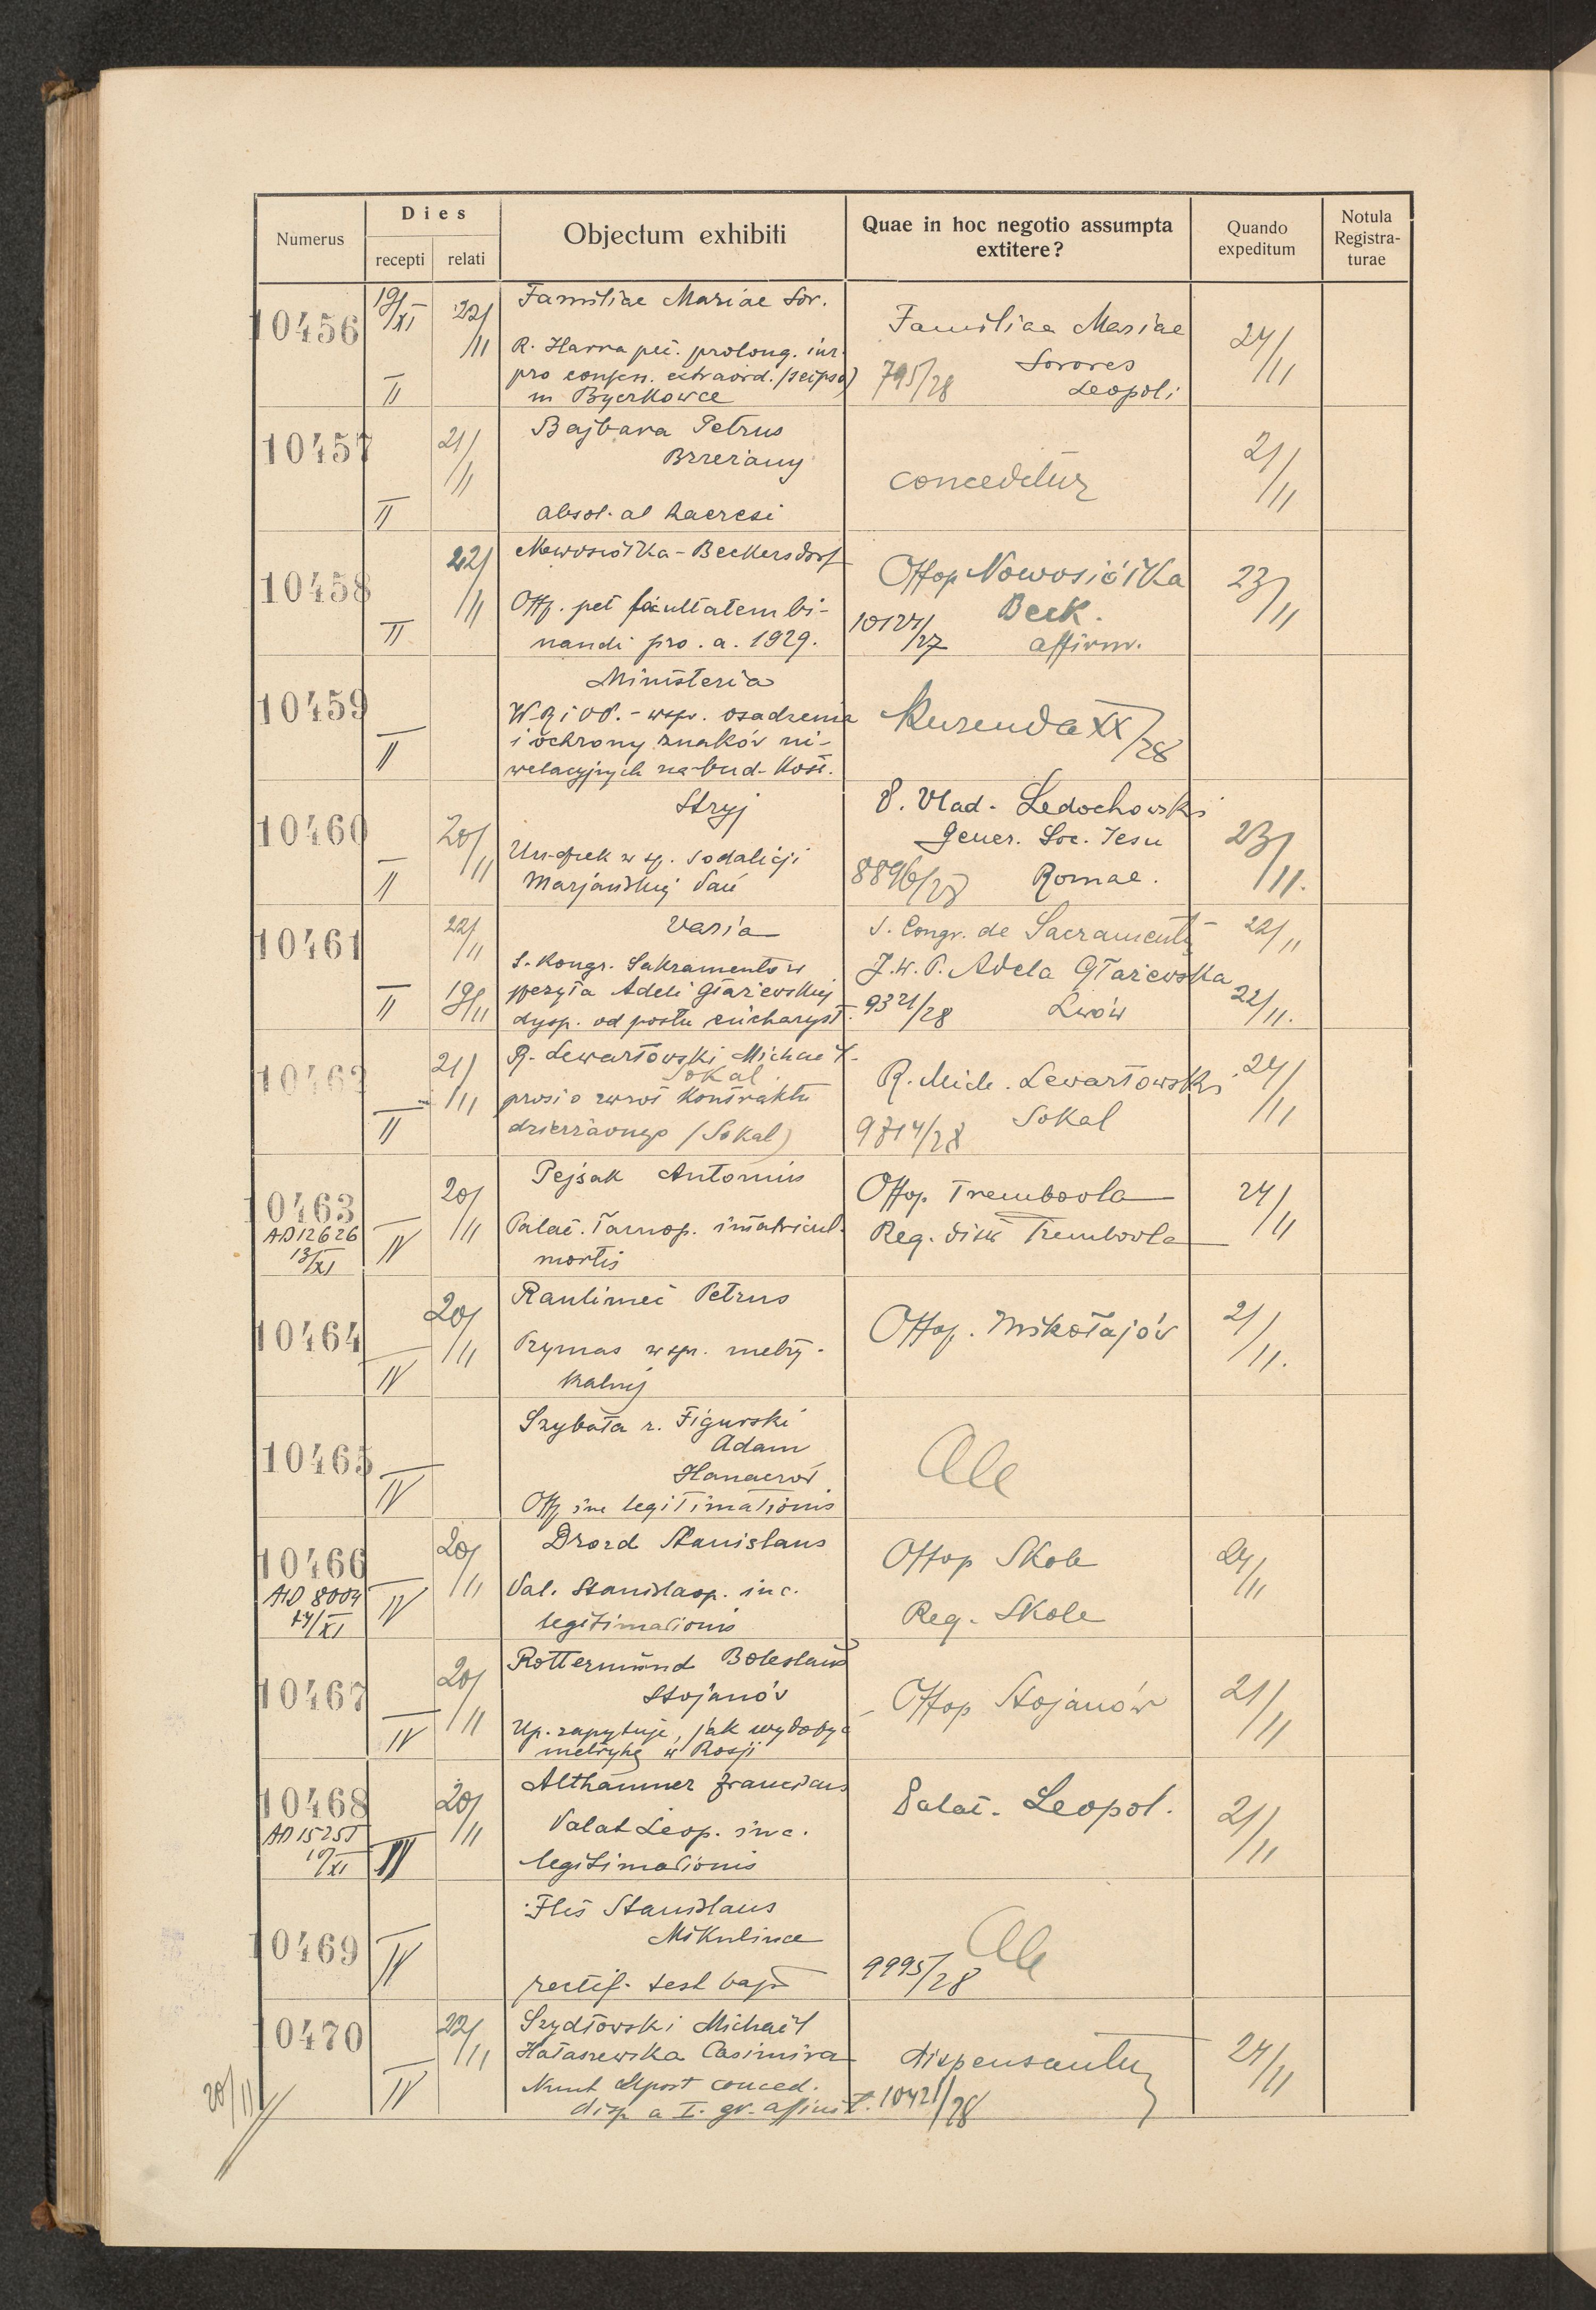 Numerus
Dies
recepti relati
Objectum exhibiti
Quae in hoc negotio assumpta
extitere?
Quando
expeditum
Notula
Registra-
turae
10456
19/XI
II
22/11
Familiae Mariae Sor.
R. Harra pet. prolong. iur.
pro confess. extraord.
in Bycrkowce
Familiae Mariae
Sorores
795/28
Leopoli
24/11
10457
II
21/11
Bajbara Petrus
Brzeżany
absol. ab haeresi
conceditur
21/11
10458
II
22/11
Nowosiółka-Beckersdorf
Offp. pet facultatem bi-
nandi pro. a. 1929.
Offop Nowosiółka
Beck.
10124/27
affirm.
23/11
10459
II
Ministeria
W.R i O.P. - wspr. osadzenia
i ochrony znaków ni-
welacyjnych na bud. Kość.
Kurenda XX/28
10460
II
20/11
Stryj
w sp. sodalicji
Marjańskiej Pań
P. Vlad. Ledochowski
Gener. Soc. Jesu
8896/28
Romae.
23/11.
10461
II
22/11
19/11
Varia
S. Kongr. Sakramentów
Adeli Głażewskiej
dysp. od postu eucharyst.
S. Congr. de Sacramentis
J.W.P. Adela Głażewska
9321/28
Lwów
22/11
22/11.
10462
II
21/11
R. Lewartowski Michaeł.
Sokal
prosi o zwrot Kontraktu
dzierżawnego (Sokal)
R. Mich. Lewartowski
Sokal
9714/28
24/11
10463
AD 12626
13/XI
IV
20/11
Pejsak Antonius
Palat. Tarnop. matricul.
mortis
Offop. Trembowla
Reg. Trembowla
24/11
10464
IV
20/11
Petrus
Prymas w spr. metry-
kalnej
Offop. Mikołajów
21/11.
10465
IV
Szybata r. Figurski
Adam
Hanaczów
Offp inc legitimationis
10466
AD 8004
14/XI
IV
20/11
Drozd Stanislaus
Pal. Stanislaop. inc.
legitimationis
Offop Skole
Reg. Skole
24/11
10467
IV
20/11
Rottermund Boleslaus
Stojanów
Up. zapytuje, jak wydobyć
metrykę w Rosji
Offop Stojanów
21/11
10468
AD 15255
IV
20/11
Althammer Franciscus
Palat Leop. inc.
legitimationis
Palat. Leopol.
21/11
10469
IV
Fliś Stanislaus
Mikulińce
rectif. test bapt
9995/28
10470
20/11
IV
22/11
Szydłowski Michaił
Hałaszewska Casimira
Nunt Apost conced.
disp a I. gr. affinit.
dispensantur
10421/28
24/11